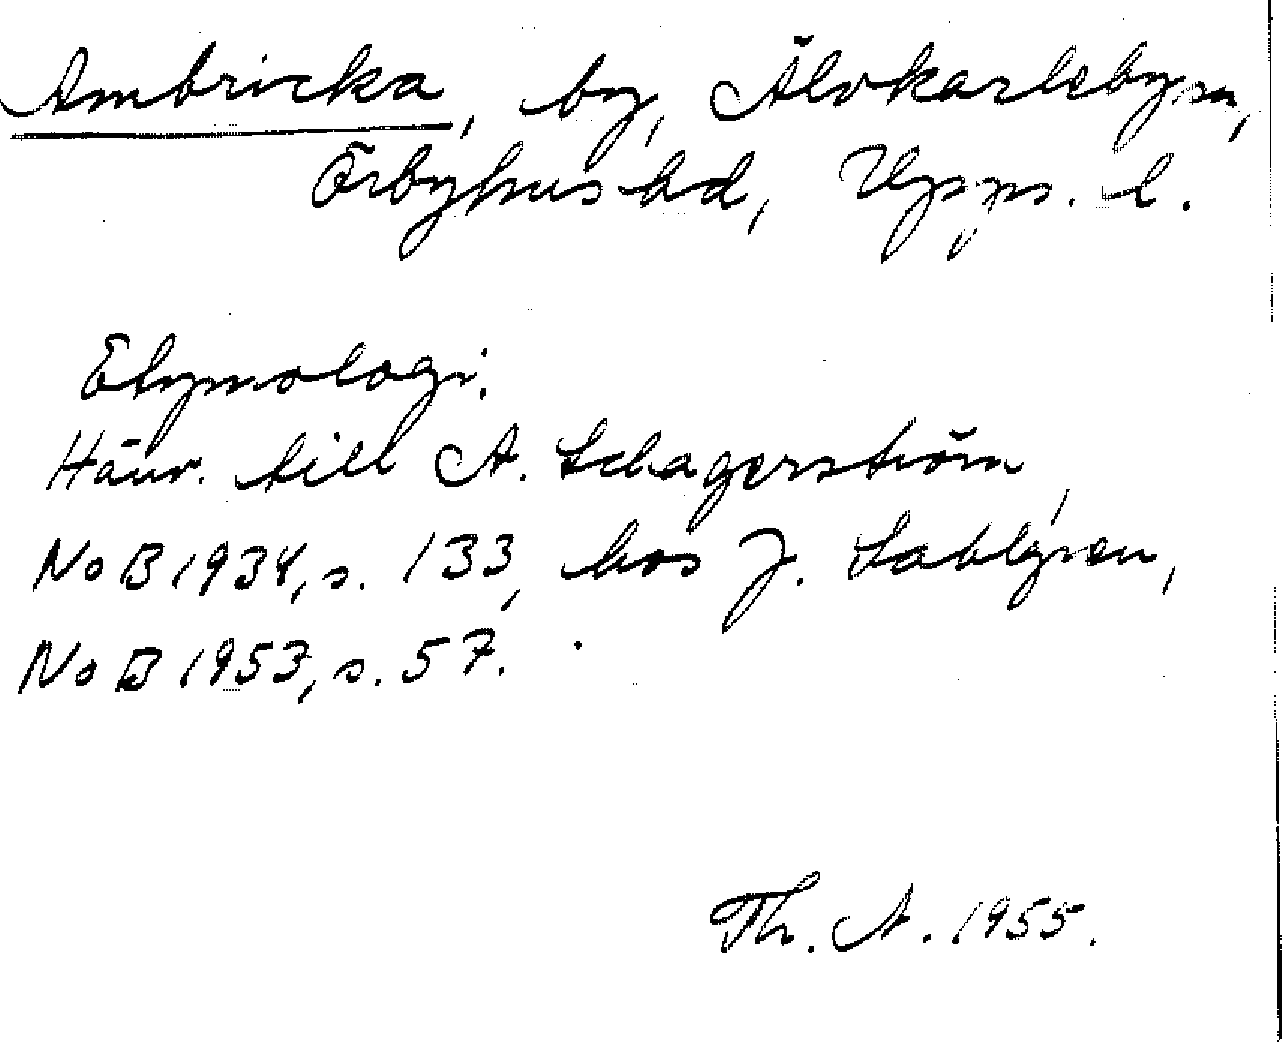 Ambricka, by, Älvkarleby sn,
Örbyhus hd, Upps. l.
Etymologi.
Hänv. till A. Schagerström,
NoB 1934, s. 133, hos J. Sahlgren,
NoB 1953, s. 57.
Th. A. 1955.